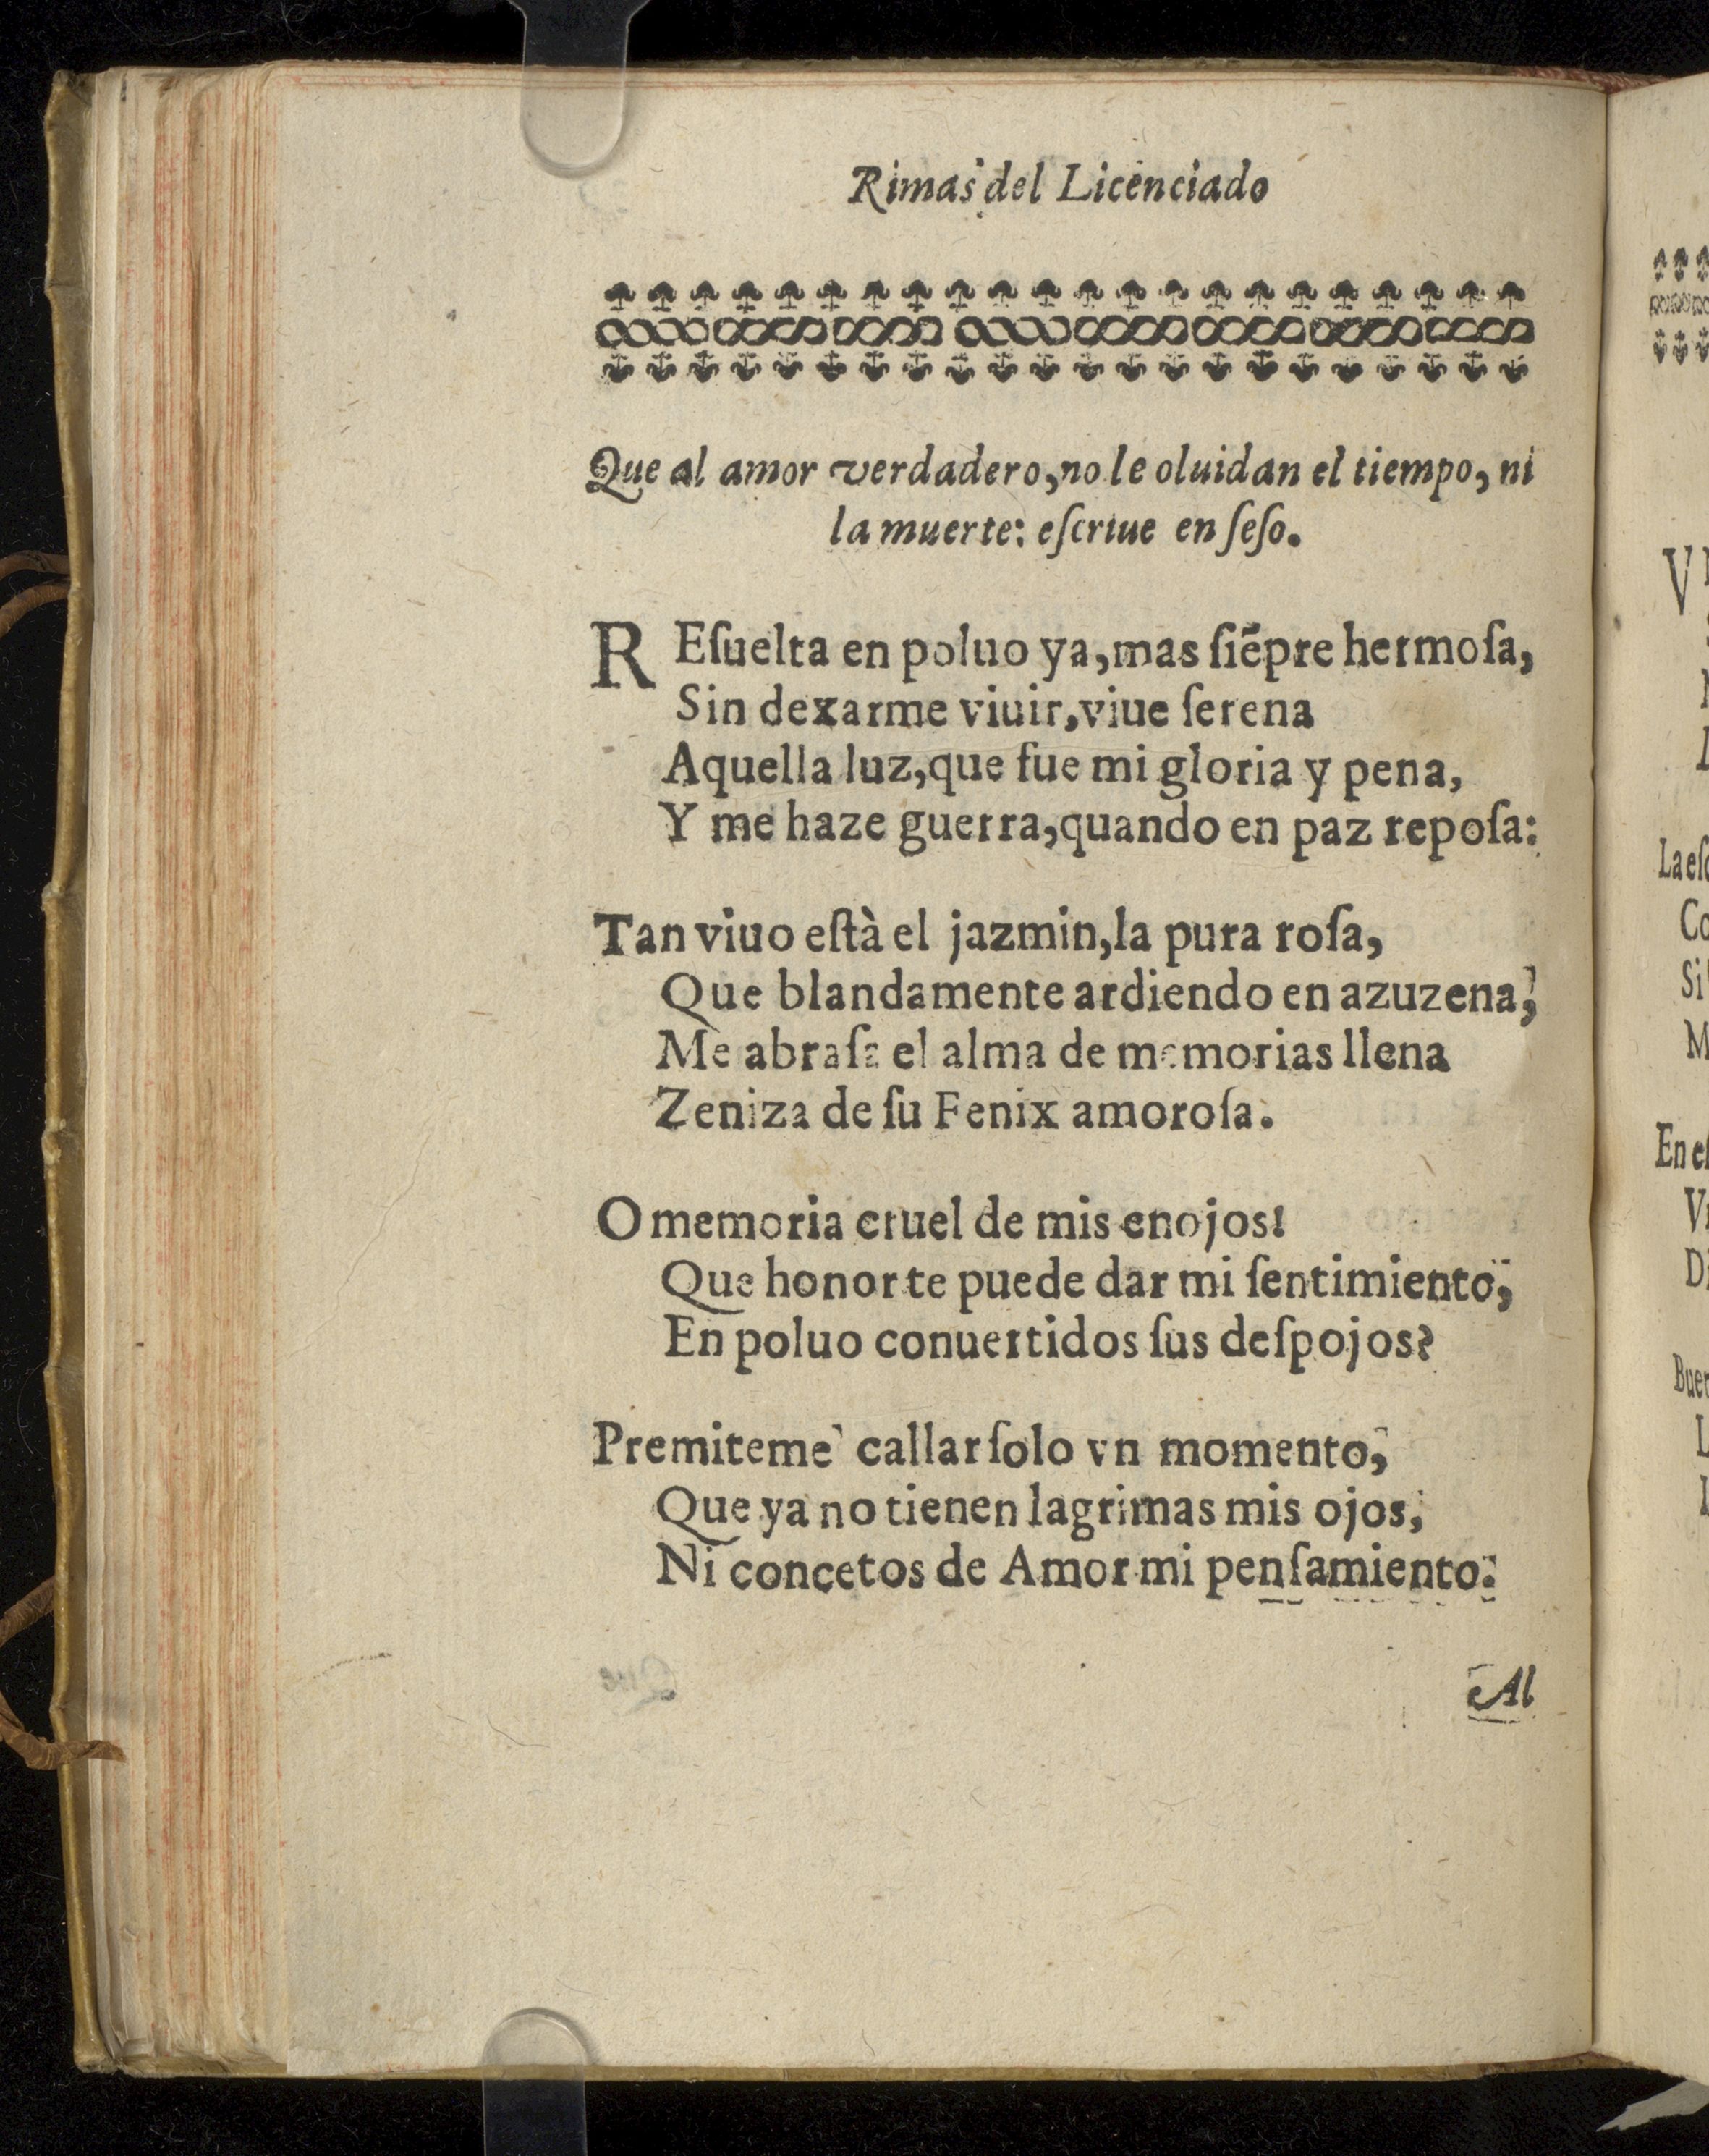 Rimas del Licenciado
Que al amor verdadero, no le oluidan el tiempo, ni
la muerte: eſcriue en ſeſo.
REſuelta en poluo ya, mas ſiẽpre hermoſa,
Sin dexarme viuir, viue ſerena
Aquella luz, que fue mi gloria y pena,
Y me haze guerra, quando en paz repoſa:
Tan viuo eſtà el jazmin, la pura roſa,
Que blandamente ardiendo en azuzena,
Me abraſa el alma de memorias llena
Zeniza de ſu Fenix amoroſa.
O memoria cruel de mis enojos!
Que honor te puede dar mi ſentimiento,
En poluo conuertidos ſus deſpojos?
Premiteme callar ſolo vn momento,
Que ya no tienen lagrimas mis ojos,
Ni concetos de Amor mi penſamiento.
Al